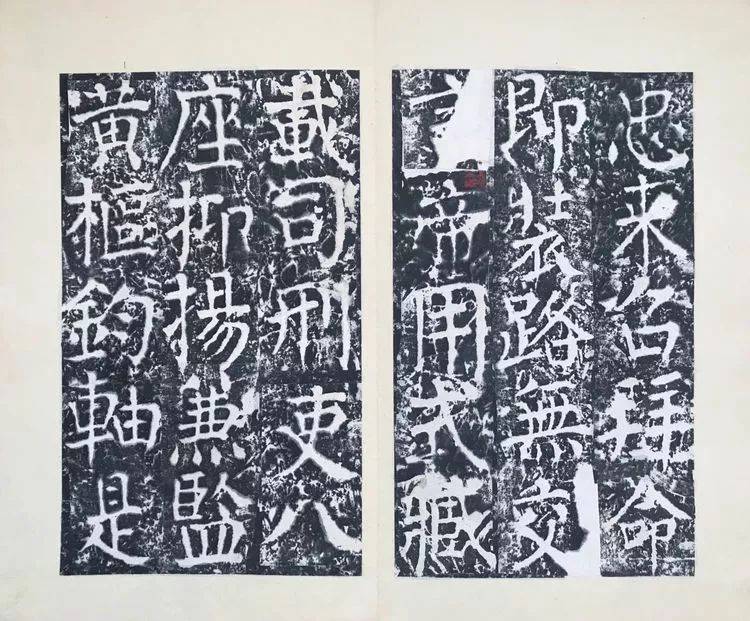 忠来召拜命
即裝路無交
帝用式臧
載司刑吏八
座抑揚兼監
黃樞鈞軸是